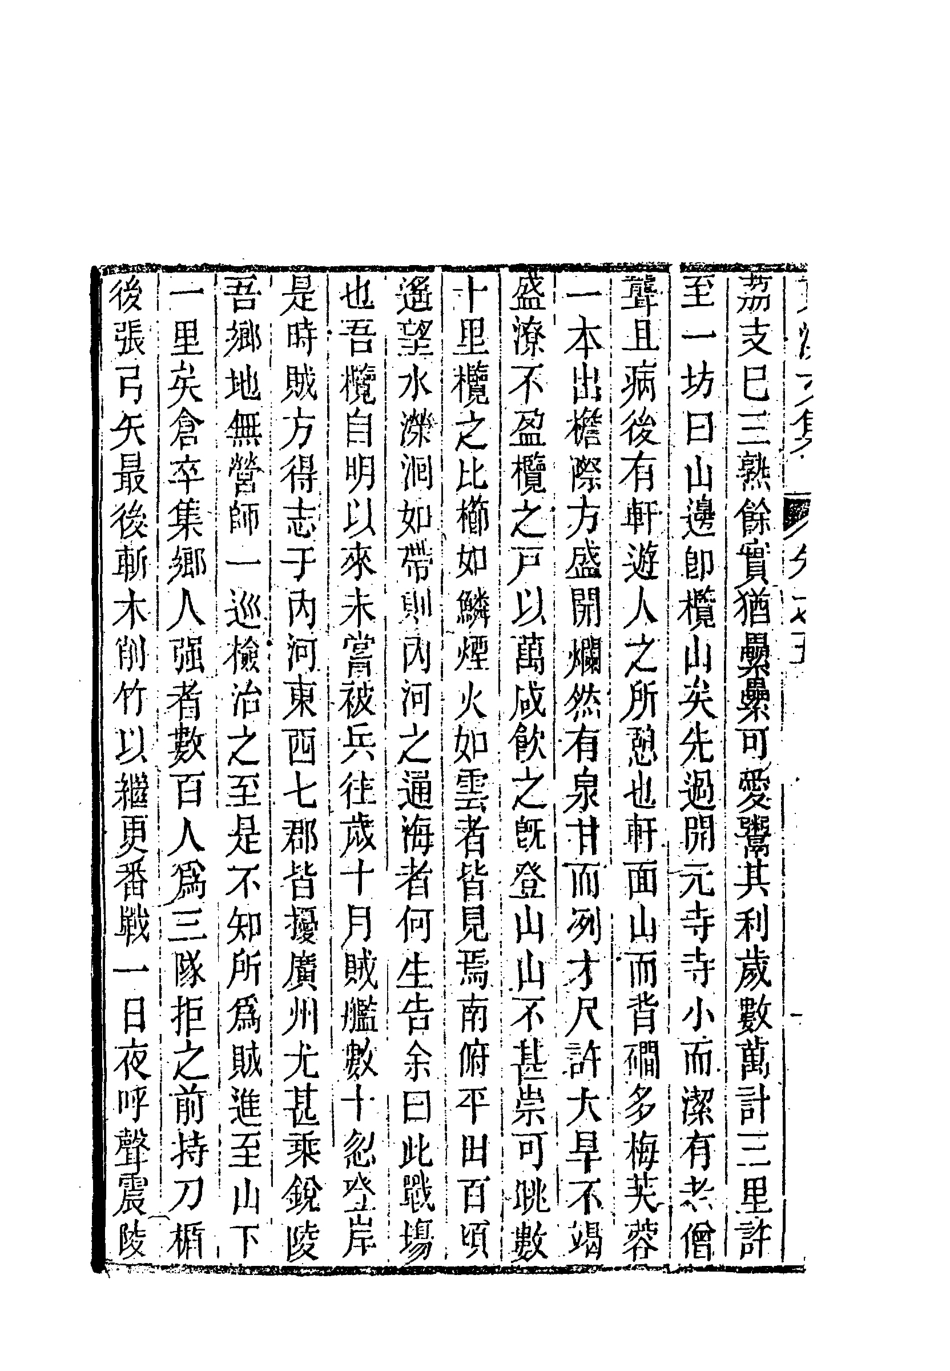 荔支已三熟餘實猶纍纍可愛鬻其利歲數萬計三里許
至一坊曰山邊卽欖山矣先過開元寺寺小而潔有老僧
聾且病後有軒遊人之所憩也軒面山而背磵多梅芙蓉
一本出檐際方盛開爛然有泉甘而冽才尺許大旱不竭
盛潦不盈欖之戸以萬咸飮之旣登山山不甚崇可眺數
十里欖之比櫛如鱗煙火如雲者皆見焉南俯平田百頃
遙望水濚洄如帶則內河之通海者何生告余曰此戰塲
也吾欖自明以來未嘗被兵往歲十月賊艦數十忽登岸
是時賊方得志于內河東西七郡皆擾廣州尤甚乘銳陵
吾鄉地無營師一巡檢治之至是不知所爲賊進至山下
一里矣倉卒集鄉人强者數百人爲三隊拒之前持刀楯
後張弓矢最後斬木削竹以繼更番戰一日夜呼聲震陵